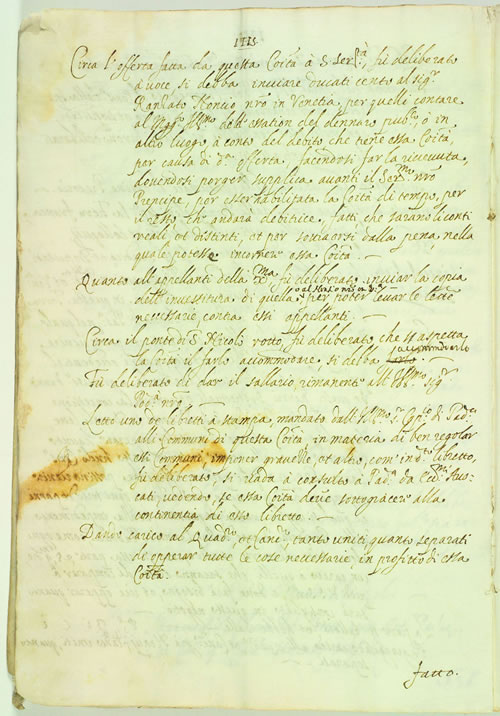 Circa l'offerta fatta da questa Co(ità à S. Ser(ità, fù deliberato
à voce si debba inuiare ducati cento al sig.r
Nontio nro in Venetia, per quello contare
al Mag.to Ill.mo dell' del dennaro pub.co, ò in
altro luogo, à conto del debito che tiene essa Coità,
per causa di d.a offerta, facendosi far la riceuuta,
douendosi porger supplica auanti il Ser.mo nro
Prencipe, per esser habilitata la Coità di tempo, per
il resto ch' andarà debitrice, fatti che sarano li conti
reali, et distinti, et per dalla pena nella
quale potesse incorrer essa Coità. —
Quanto all' appellanti della fù deliberato inuiar la copia
dell' inuestitura di quella, per poter leuar le lettere
necessarie contra essi appellanti. —
Circa il ponte di S. Nicolò rotto, fù deliberato, che s'aspetta
la Coità il farlo accommodare, si debba accommodarlo
Fù deliberato di dar il sallario rimanente all' Ill.mo sig.r
nro. —
Letto uno de libretti à stampa, mandato dall' Ill.mo S.r Cap.o di Pad.a
alli Communi di questa Coità, in materia di ben regolar
essi Communi, imponer grauezze, et altro, com' in d.o libretto,
fù deliberato, si vada à consulto à Pad.a da Ecc.mi Auo-
cati, uedendo, se essa Coità deue sottogiacere alla
continentia di esso libretto. —
Dando carico al Quad.o et Canc.o, tanto uniti, quanto separati
di opperar tutte le cose necessarie in profitto di essa
Coità.
fatto.